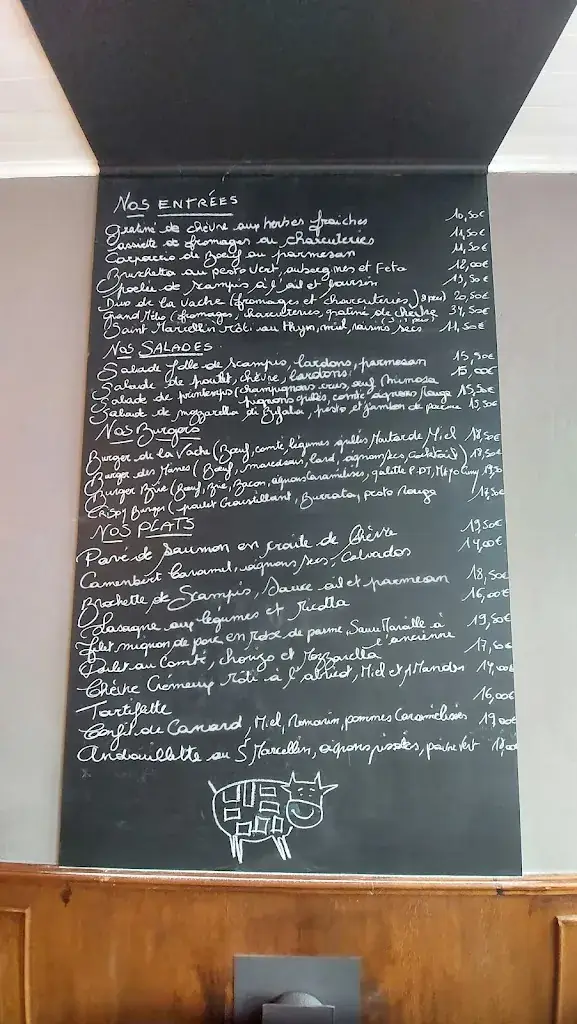 NOS ENTRÉES
Gratiné de chèvre aux herbes fraiches 10,50€
Cassiette de fromages ou charcuteries 11,50€
Carpaccio de Bœuf au parmesan 11,50€
Bruschetta au pesto vert, aubergines et Feta 12,00€
Poelée de scampis à l'ail et boursin 13,50€
Duo de la Vache (fromages et charcuteries) 20,50€
Grand Méto (fromages, charcuteries, gratiné de chèvre 34,50€
Saint Marcellin rôti au thym, miel, raisins secs 11,50€
NOS SALADES
Salade folle de scampis, lardons, parmesan 15,50€
Salade de poulet, chèvre, lardons 15,00€
Salade de printemps (champignons crus, œuf mimosa
pignons grillés, comté oignons rouge 15,50€
Salade de mozzarella di Bufala, pesto et jambon de parme 15,50€
NOS BURGERS
Burger de la Vache (Bœuf, comté, légumes grillés Moutarde Miel 18,50€
Burger des Manes (Bœuf, lard, oignons secs, cocktail) 17,50€
Burger Brie (Bœuf, Brie, Bacon, oignons caramélisés, galette P.DT, Mayo Curry
Crispy Burger (poulet croustillant, Burrata, pesto rouge 17,50€
NOS PLATS
Pavé de saumon en croute de Chèvre 19,50€
Camembert caramel, oignons secs, Calvados 14,00€
Brochette de Scampis, sauce ail et parmesan 18,50€
Lasagne aux légumes et ricotta 16,00€
Filet mignon de porc en robe de parme, Sauce Maroille à
l'ancienne 19,50€
Poulet au comté, chorizo et mozzarella
Chèvre Crémeux rôti à l'abricot, Miel et Amandes 14,00€
Tartiflette 16,00€
Confit de Canard, Miel, Romarin, pommes caramélisées 19,00€
Andouillette au St Marcellin, oignons poivre vert